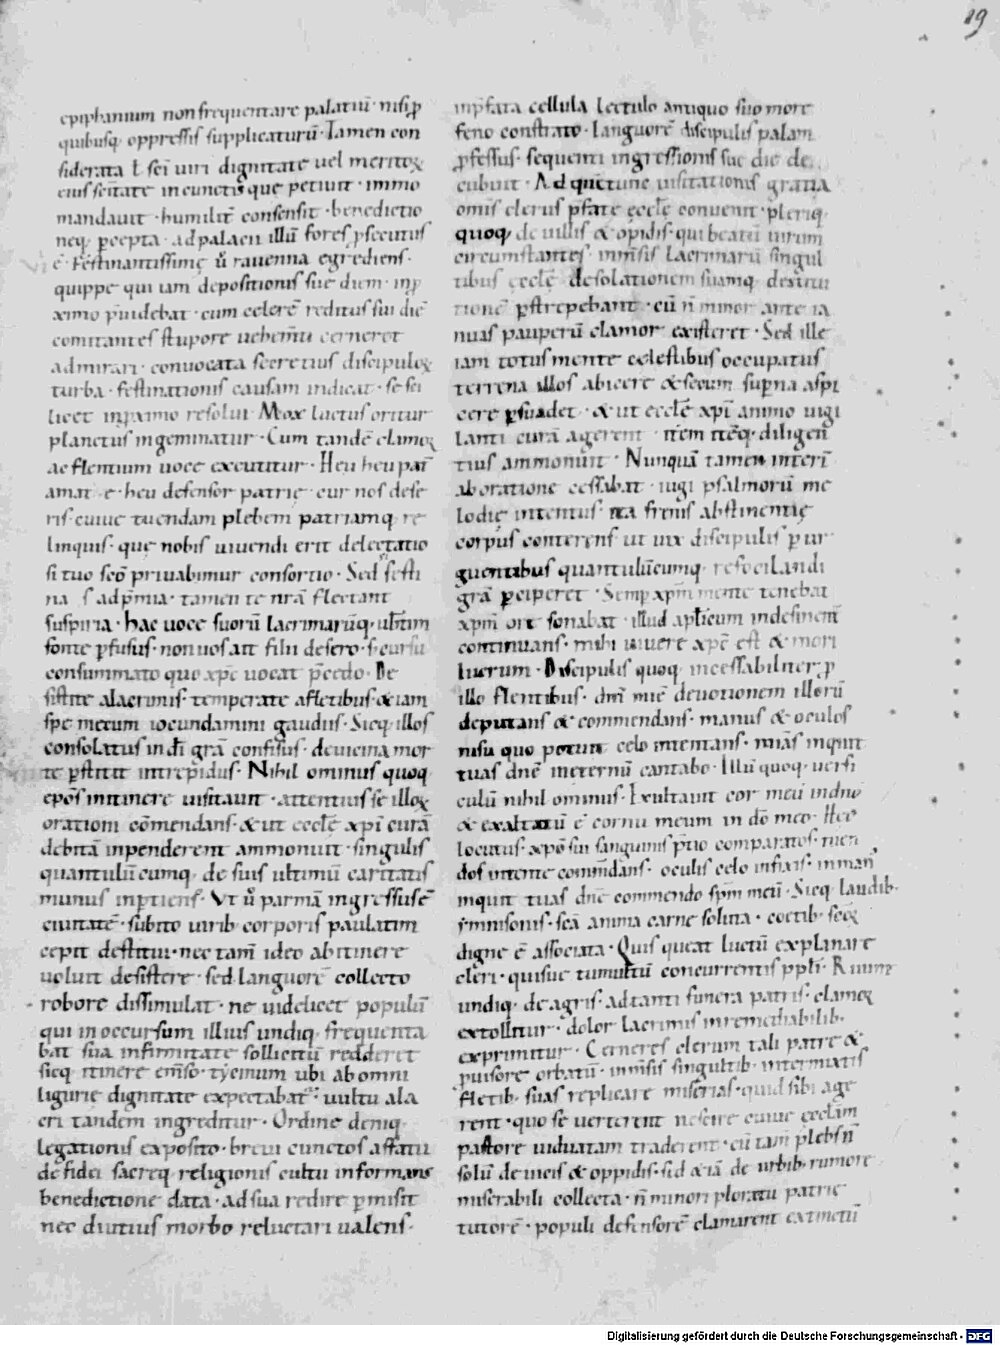 19
epiphanium non frequentare palatiū · nisi ꝓ
quibusq; oppressis supplicaturū · Tamen con
siderata ł sc̄i uiri dignitate uel meritoꝝ
eius sc̄itate in cunctis que petiuit · immo
mandauit · humilit̄ consensit · benedictio
neq; p̄cepta · ad palacii illū fores ꝓsecutus
ē · Festinantissime u̾ rauenna egrediens ·
quippe qui iam depositionis suę diem · inp̱
ximo p̄uidebat · cum celerē reditus sui diē
comitantes stupore uehem̄ti cerneret
admirari · conuocata secretius discipuloꝝ
turba · festinationis causam indicat · se sci
licet inproximo resolui · Mox luctus oritur
planctus ingeminatur · Cum tandē clamoꝝ
ac flentium uoce excutitur · Heu heu pat̄
amat e · heu defensor patrię · cur nos dese
ris · cuiue tuendam plebem patriamq; re
linquis · quę nobis uiuendi erit delectatio
si tuo sc̄o priuabimur consortio · Sed festi
na s ad p̄mia · tamen te nr̄a flectant
suspiria · hac uoce suorū lacrimarūq; ubt̄im
fonte ꝑfusus · non uos ait filii desero · s; cursu
consummato quo xp̄c uocat p̄cedo · De
sistite a lacrimis · temperate a fletibus & iam
spe mecum iocundamini gaudiis · Sicq; illos
consolatus in dī grā confisus · de uicina mor
te ꝑstitit intrepidus · Nihil ominus quoq;
ep̄os in itinere uisitauit · attentius se illoꝝ
orationi cōmendans · & ut eccłę xp̄i curā
debitā inpenderent ammonuit · singulis
quantulūcumq; de suis ultimū caritatis
munus inptiens · Vt u̾ parmā ingressus ē
ciuitatē · subito uirib; corporis paulatim
cepit destitui · nec tam̄ ideo ab itinere
uoluit desistere · sed languorē collecto
robore dissimulat · ne uidelicet populū
qui in occursum illius undiq; frequenta
bat sua infirmitate sollicitū redderet
sicq; itinere em̄so · tycinum ubi ab omni
ligurię dignitate expectabat᷑ · uultu ala
cri tandem ingreditur · Ordine deniq;
legationis exposito · breui cunctos affatu
de fidei sacręq; religionis cultu informans
benedictione data · ad sua redire ꝑmisit
nec diutius morbo reluctari ualens ·
inp̄fata cellula lectulo antiquo suo more
feno constrato · languorē discipulis palam
ꝓfessus · sequenti ingressionis suę die de
cubuit · Ad quē tunc uisitationis gratia
omis clerus p̄fatę eccłę conuenit · pleriq;
quoq; de uillis & opidis · qui beatū uirum
circumstantes · inm̄sis lacrimarū singul
tibus eccłę desolationem suamq; destitu
tionē ꝑstrepebant · cū n̄ minor ante ia
nuas pauperū clamor existeret · Sed ille
iam totus mente celestibus occupatus
terrena illos abicere & secum sup̄na aspi
cere ꝑsuadet · & ut eccłę xp̄i animo uigi
lanti curā agerent · it̄em it̄eq; diligen̄
tius ammonuit · Nunquā tamen interī
ab oratione cessabat · iugi psalmorū me
lodię intentus · ita frenis abstinentię
corpus conterens ut uix discipulis ꝑ ur
guentibus quantulūcumq; refocilandi
grā ꝑciperet · Semp xp̄m mente tenebat
xp̄m ore sonabat · illud ap̄licum indesinent̄
continuans · mihi uiuere xp̄c est & mori
lucrum · Discipulis quoq; incessabiliter ꝓ
illo flentibus · dn̄i mie deuotionem illorū
deputans & commendans · manus & oculos
nisu quo potuit celo intentans · mias inquit
tuas dn̄e ineternū cantabo · Illū quoq; uersi
culū nihil ominus · Exultauit cor meū in dn̄o
& exaltatū ē cornu meum in dō meo · Hec
locutus · xp̄o sui sanguinis p̄tio comparatos · men
dos intente commendans · oculis celo infixis · in man᷑
inquit tuas dn̄e commendo sp̄m meū · Sicq; laudib;
ymnisonis · sc̄a anima carne soluta · coetib; sc̄oꝝ
digne ē associata · Quis queat luctū explanare
cleri · quisue tumultū concurrentis pp̄li · Ruunt
undiq; de agris · ad tanti funera patris · clamoꝝ
extollitur · dolor lacrimis inremediabilib;
exprimitur · Cerneres clerum tali patre &
ꝓuisore orbatū · inm̄sis singultib; intermixtis
fletib; suas replicare miserias · quid sibi age
rent · quo se uerterent nescire cuiue eccłam
pastore uiduatam traderent · cū tam plebs n̄
solū de uicis & oppidis · sed &iā de urbib; rumore
miserabili collecta · n̄ minori ploratu patrię
tutorē · populi defensorē clamarent extinctū
Digitalisierung gefördert durch die Deutsche Forschungsgemeinschaft - DFG